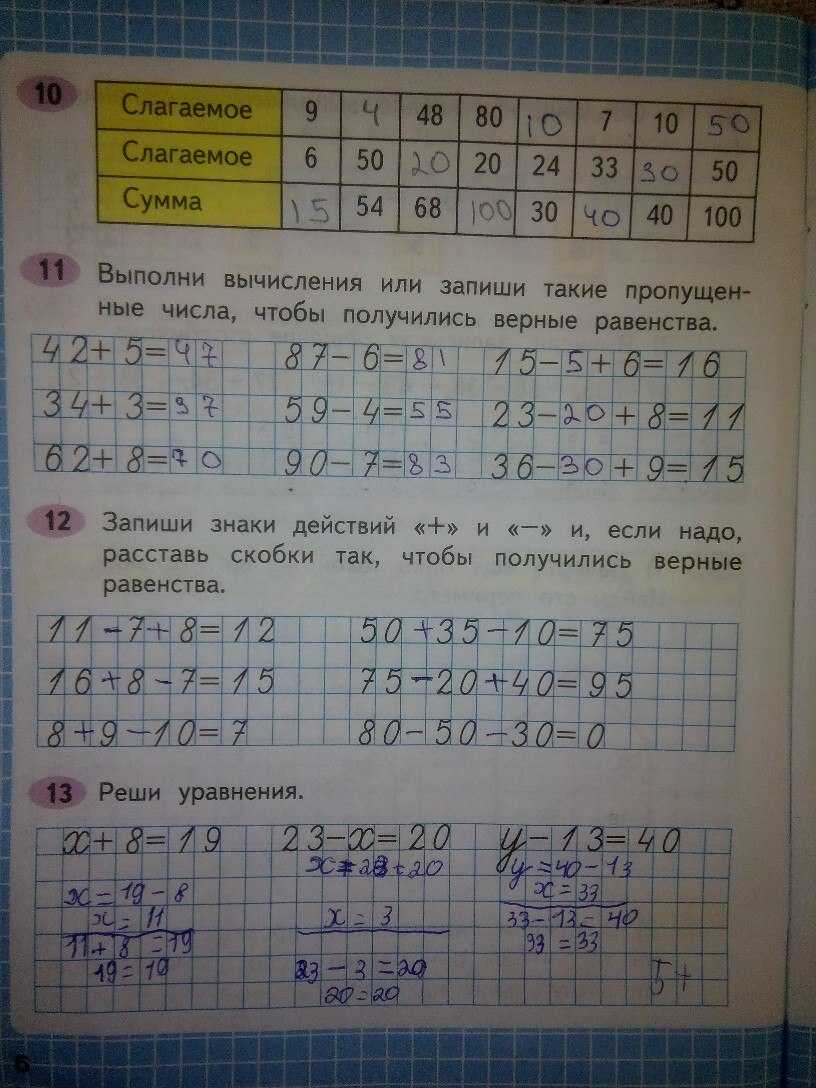 10
Слагаемое 9 4 48 80 10 7 10 50
Слагаемое 6 50 20 20 24 33 30 50
Сумма 15 54 68 100 30 40 40 100
11 Выполни вычисления или запиши такие пропущен-
ные числа, чтобы получились верные равенства.
42+5=47 87-6=81 15-5+6=16
34+3=37 59-4=55 23-20+8=11
62+8=70 90-7=83 36-30+9=15
12 Запиши знаки действий «+» и «—» и, если надо,
расставь скобки так, чтобы получились верные
равенства.
11-7+8=12 50+35-10=75
16+8-7=15 75-20+40=95
8+9-10=7 80-50-30=0
13 Реши уравнения.
x+8=19 23-x=20 y-13=40
x=23-20 y=40-13
x=19-8 x=33
x=11 x=3 33-13=40
11+8=19 33=33
19=19 23-3=20
20=20
5+
6